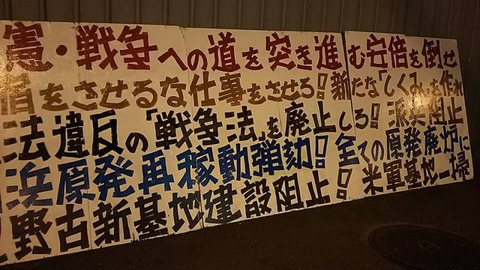 憲・戦争への道を突き進む安倍を倒せ
をさせるな仕事をさせろ!新たな「しくみ」を作れ
法違反の「戦争法」を廃止しろ!派兵阻止
浜原発再稼動弾劾!全ての原発廃炉に
野古新基地建設阻止!米軍基地一掃